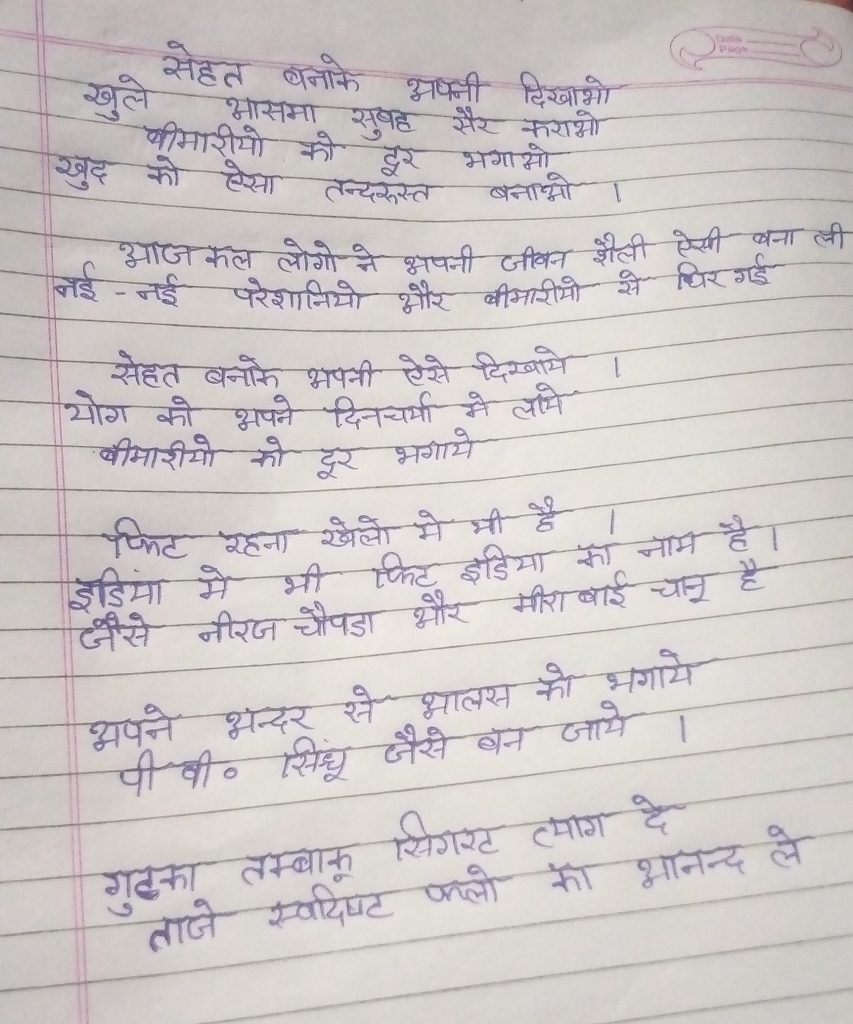 Date
Page
सेहत बनाके अपनी दिखाओ
खुले आसमा सुबह सैर कराओ
बीमारीयो को दूर भगाओ
खुद को ऐसा तन्दरूस्त बनाओ ।
आज कल लोगो ने अपनी जीवन शैली ऐसी बना ली
नई - नई परेशानियो और बीमारीयो से घिर गई
सेहत बनाके अपनी ऐसे दिखाये ।
योग को अपने दिनचर्या मे लाये
बीमारीयो को दूर भगाये
फिट रहना खेलो मे भी है ।
इंडिया मे भी फिट इंडिया का नाम है ।
जैसे नीरज चौपडा और मीरा बाई चानू है
अपने अन्दर से आलस को भगाये
पी वी० सिंधू जैसे बन जाये ।
गुटका तम्बाकू सिगरट त्याग दे
ताजे स्वदिष्ट फलो का आनन्द ले